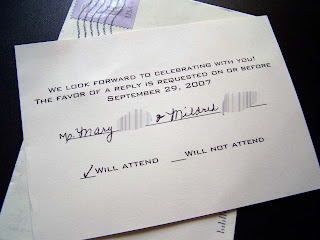 We look forward to celebrating with you!
The favor of a reply is requested on or before
September 29, 2007
M s. Mary & Mildred
✓ Will attend ___ Will not attend